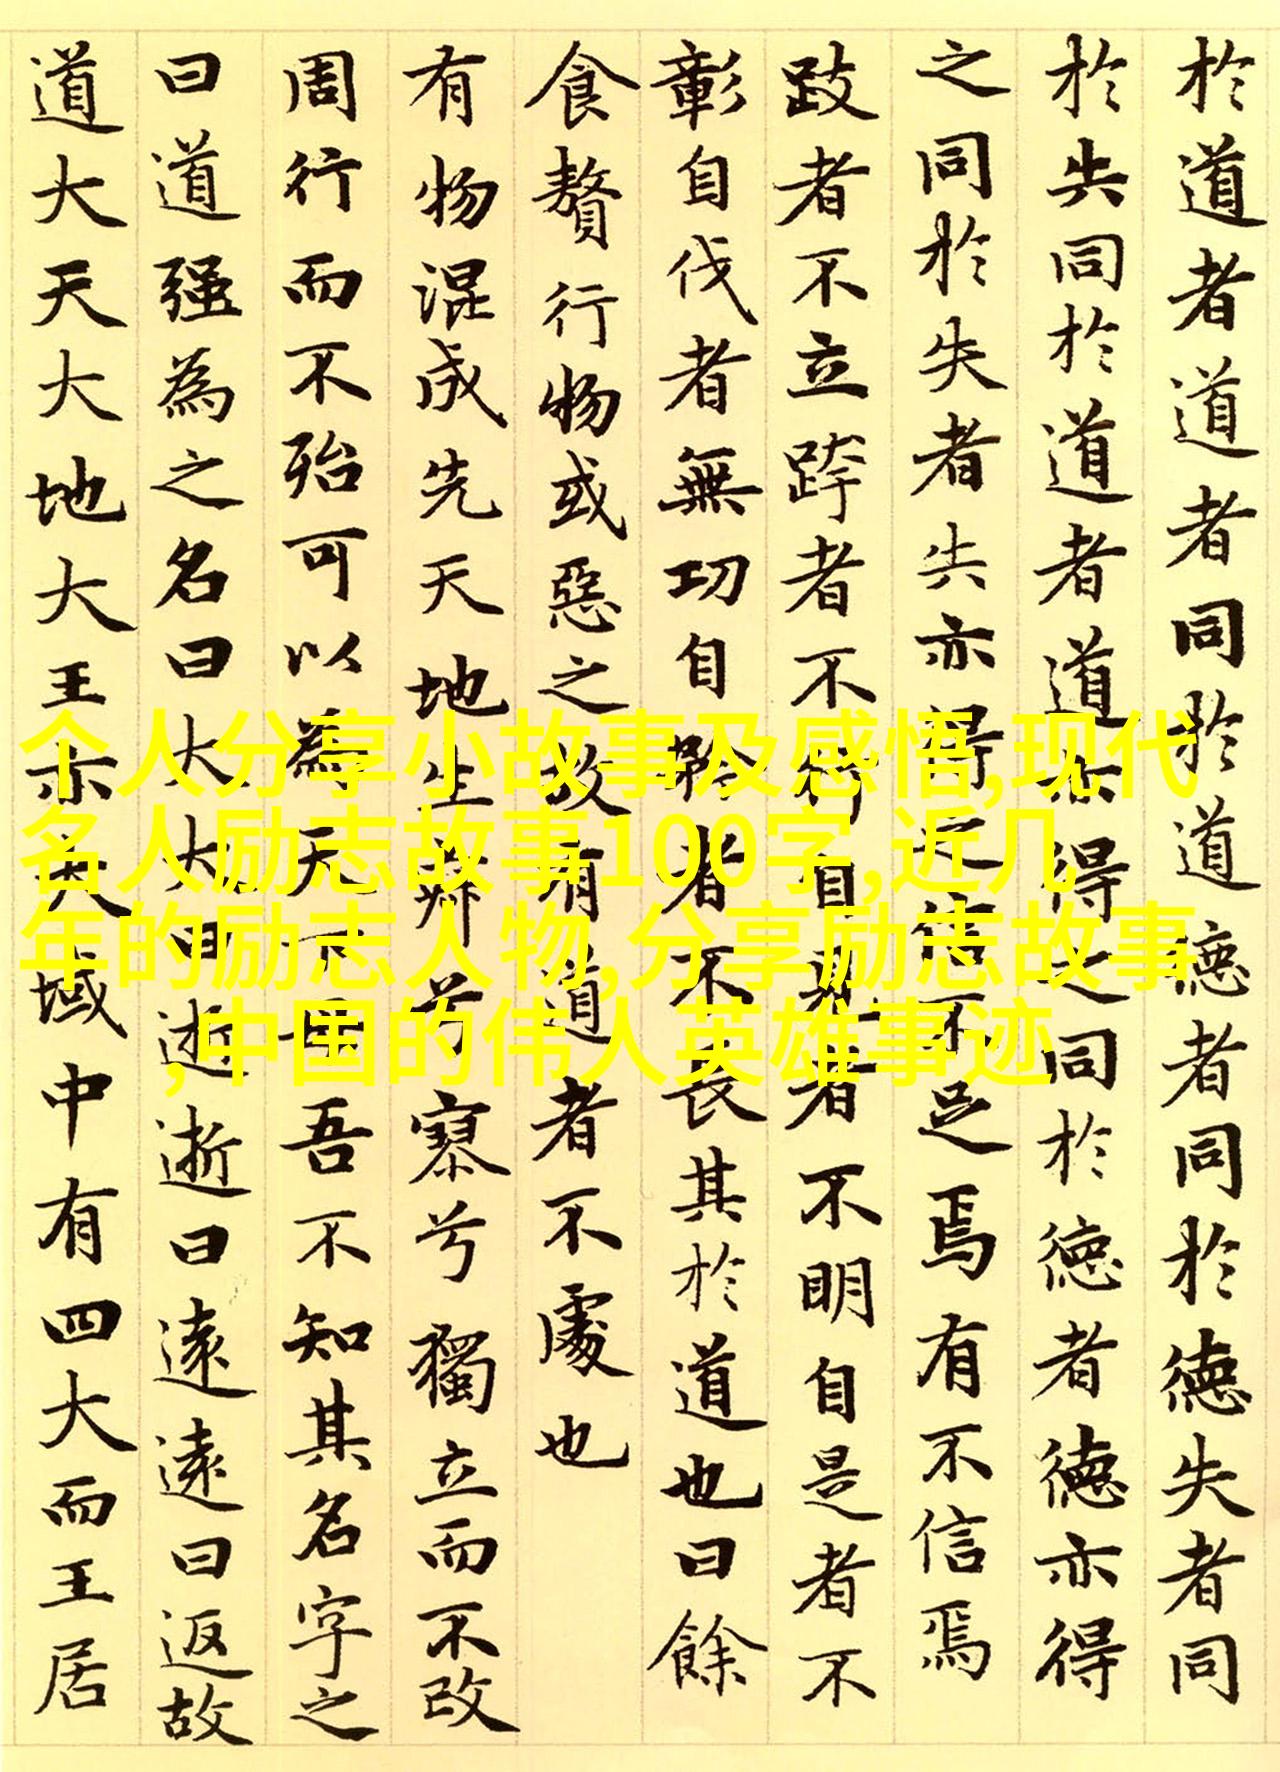 於道者道者同於道德者同於德失者同
於失同於道者道亦得之同於德者德亦得
之同於失者失亦得之信不足焉有不信焉
跂者不立跨者不行自見者不明自是者不
彰自伐者無功自矜者不長其於道也曰餘
食贅行物或惡之故有道者不處也
有物混成先天地生寂兮寥兮獨立而不改
周行而不殆可以為天下母吾不知其名字之
曰道强為之名曰大大曰逝逝曰遠遠曰返故
道大天大地大王亦大域中有四大而王居
个人分享小故事及感悟,现代
名人励志故事100字,近几
年的励志人物,分享励志故事
,中国的伟人英雄事迹